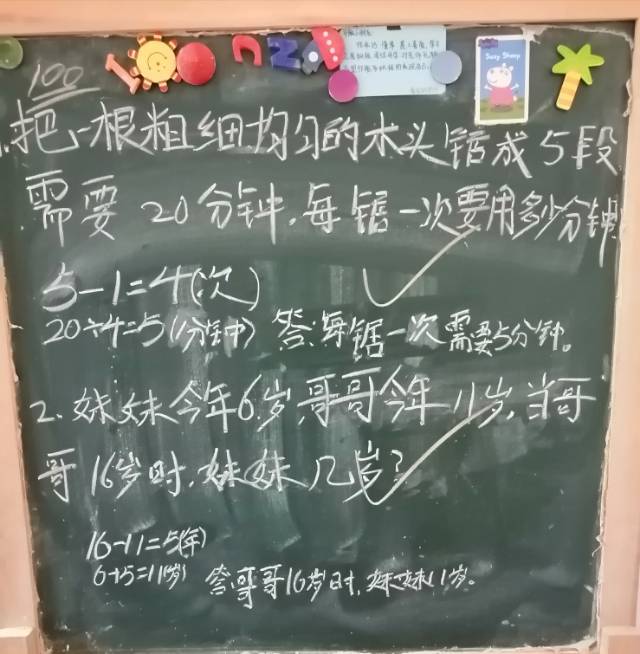 100
1.把一根粗细均匀的木头锯成5段
需要20分钟,每锯一次要用多少分钟
5-1=4(次)
20÷4=5(分钟) 答:每锯一次需要5分钟。
2.妹妹今年6岁,哥哥今年11岁,当哥
哥16岁时,妹妹几岁?
16-11=5(年)
6+5=11(岁) 答哥哥16岁时,妹妹11岁。
Suzy Sheep